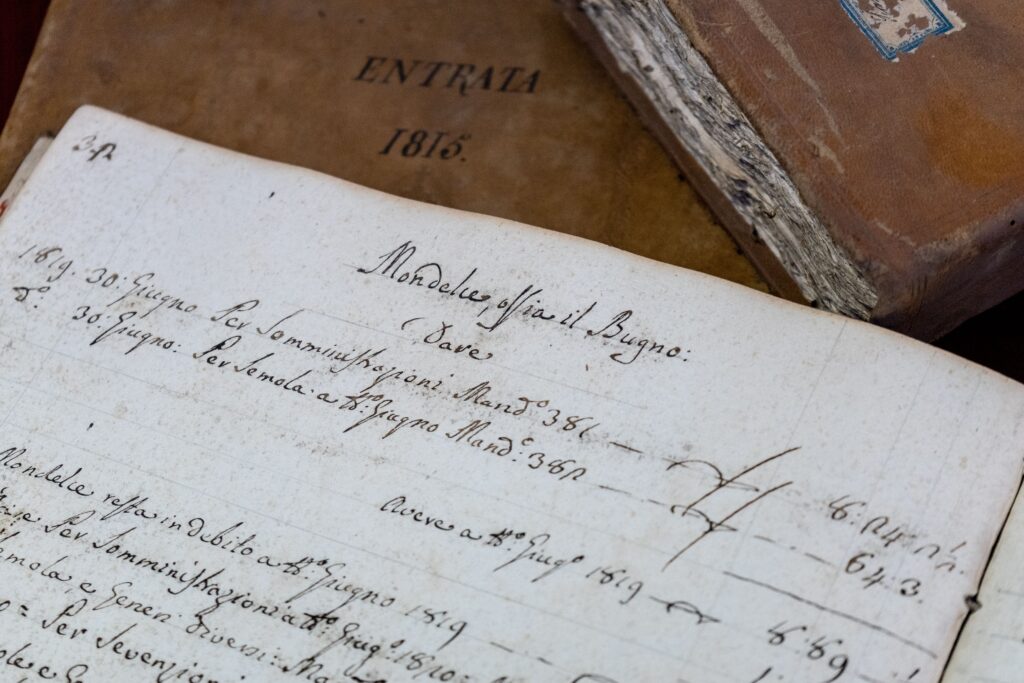 ENTRATA
1815.
Mondelce, ossia il Bugno:
Dare
1819. 30: Giugno Per Somministrazioni Mand.o 381
d.o 30: Giugno: Per Semola a tt.o Giugno Mand.o: 382
64.3.
Avere a tt.o Giug.o 1819
Mondelce resta in debito a tt.o Giugno 1819
Per Somministrazioni a tt.o Giug.o 1820
Semola, e Generi diversi:
= Per